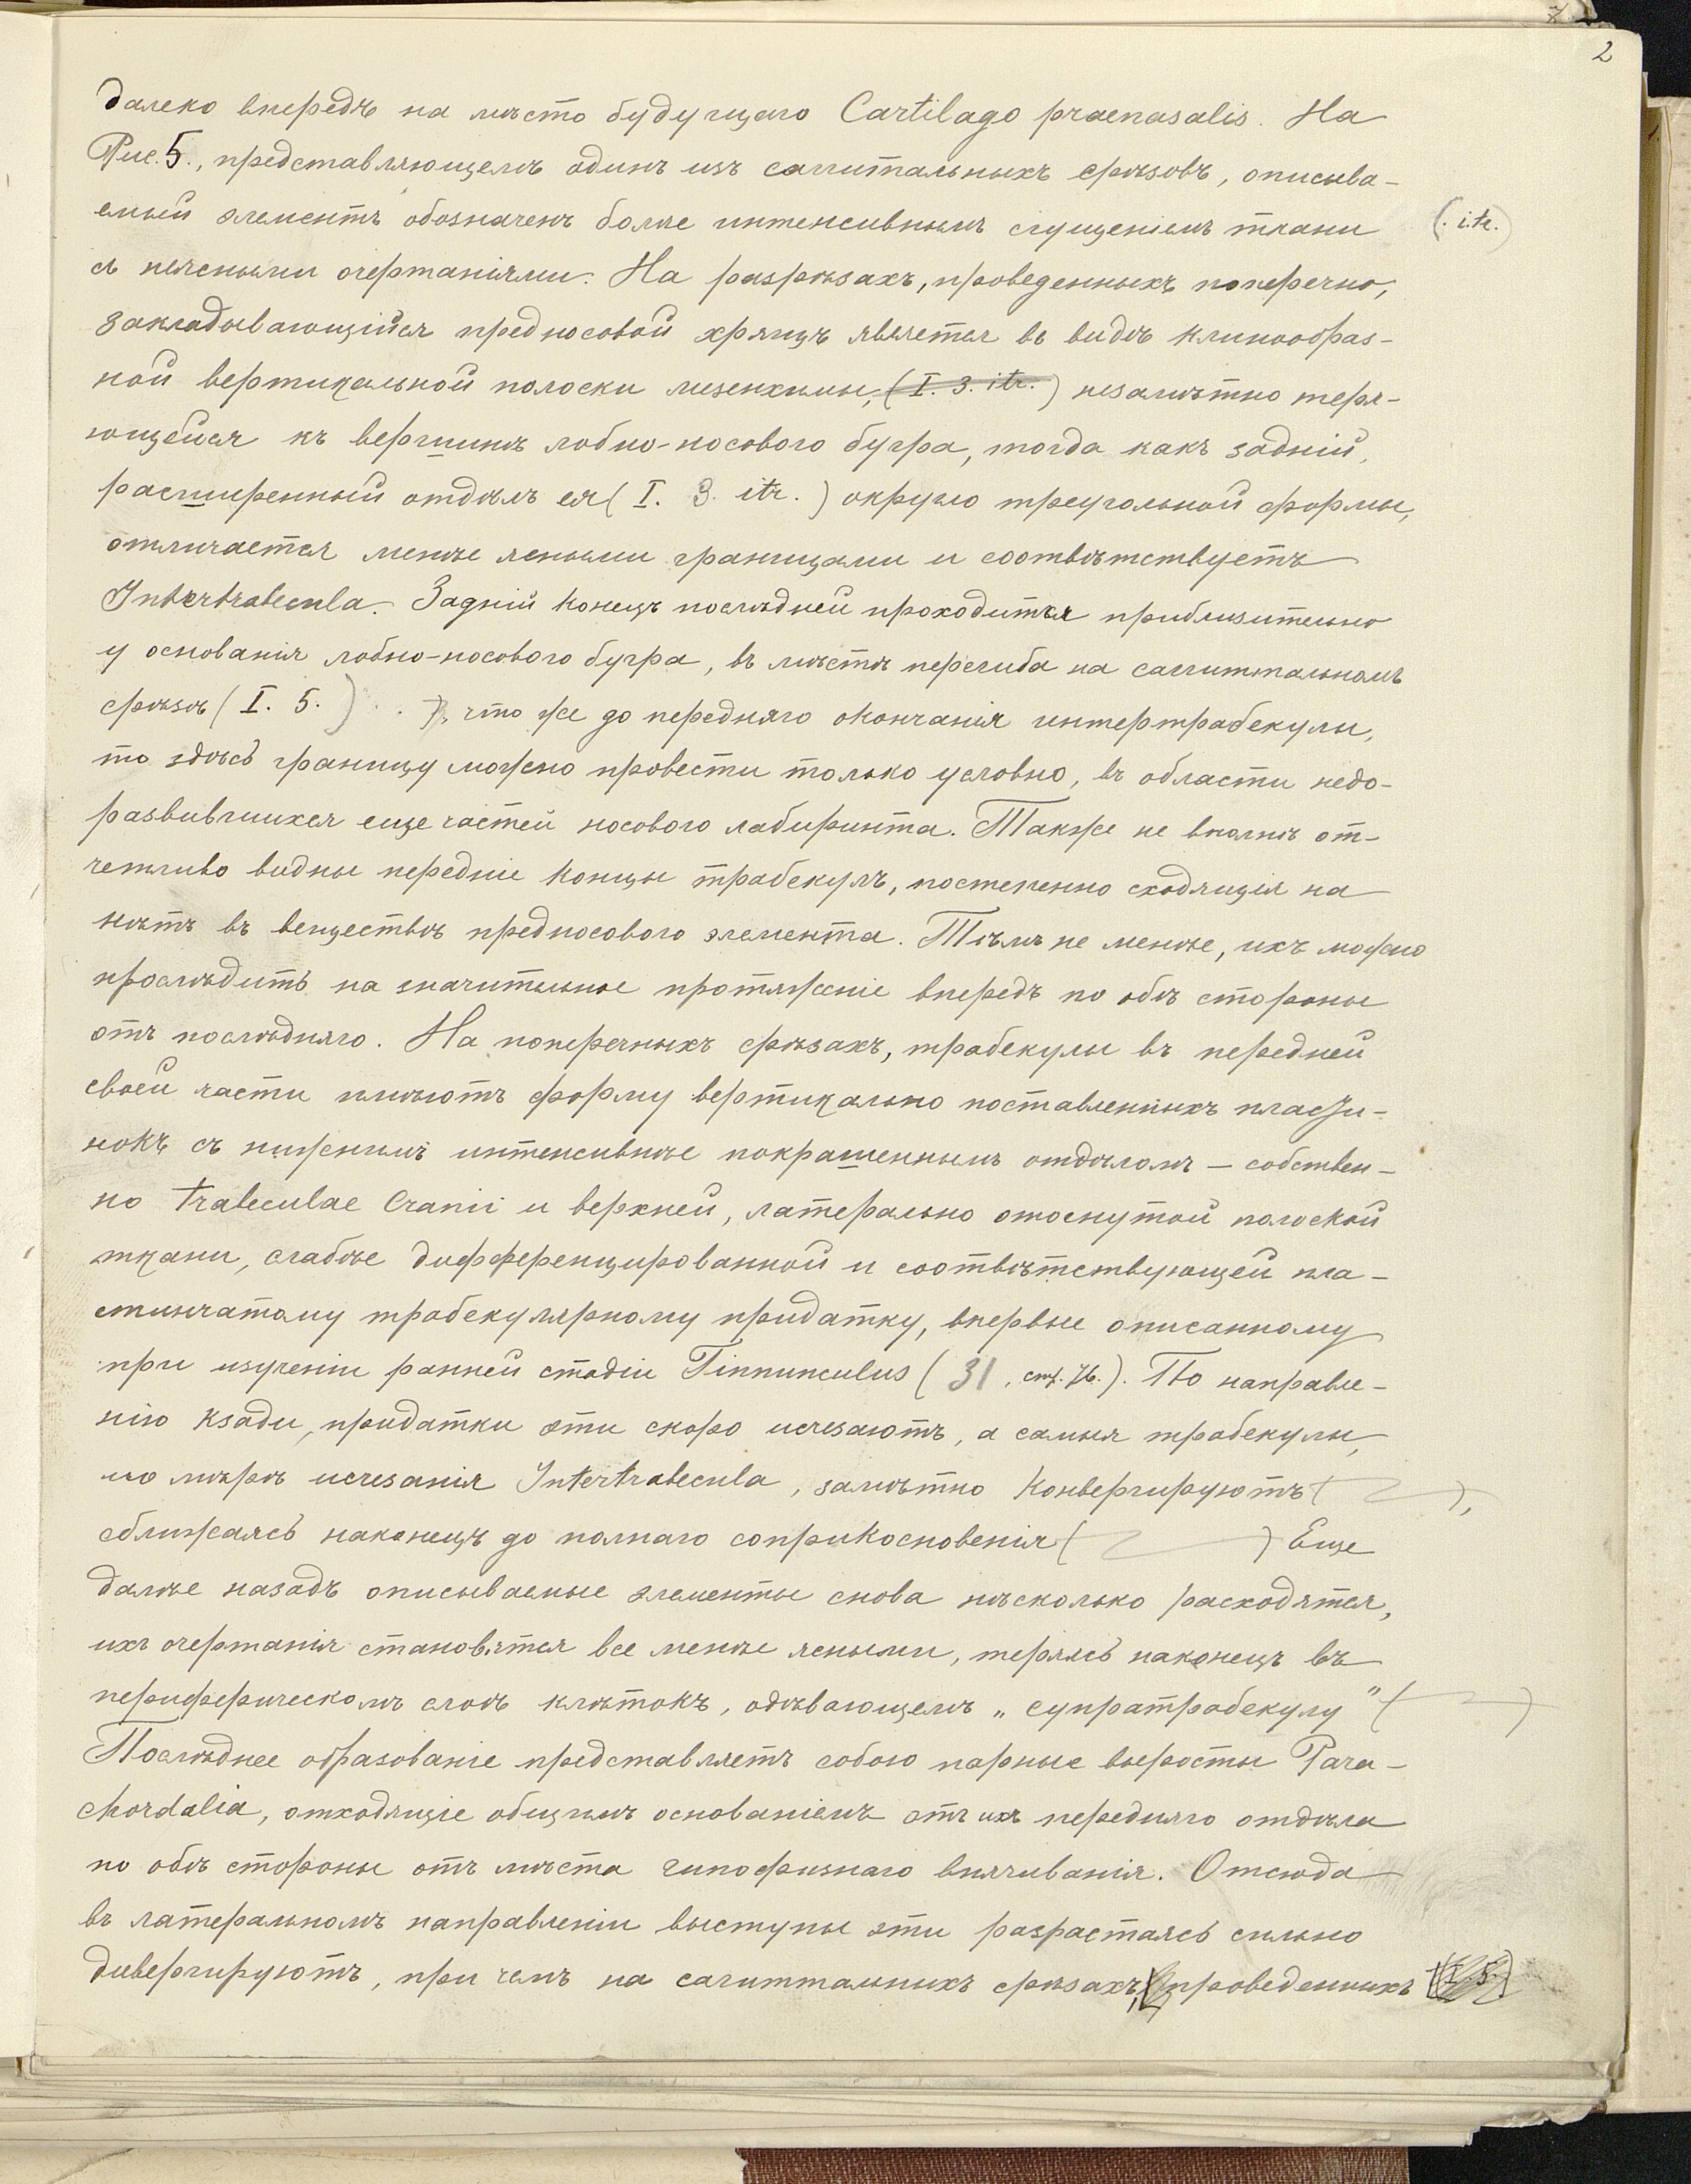 2
далеко впередъ на мѣсто будущаго Cartilago praenasalis. На
Рис. 5., представляющемъ одинъ изъ сагитальныхъ срѣзовъ, описыва-
емый элементъ обозначенъ болѣе интенсивнымъ сгущеніемъ ткани (. i.tr.)
съ неясными очертаніями. На разрѣзахъ, проведенныхъ поперечно,
закладывающійся предносовой хрящъ является въ видѣ клинообраз-
ной вертикальной полоски мезенхимы, (I. 3. itr.) незамѣтно теря-
ющейся къ вершинѣ лобно-носового бугра, тогда какъ задній,
расширенный отдѣлъ ея (I. 3. itr.) округло треугольной формы,
отличается менѣе ясными границами и соотвѣтствуетъ
Intertrabecula. Задній конецъ послѣдней проходится приблизительно
у основанія лобно-носового бугра, въ мѣстѣ перегиба на сагиттальномъ
срѣзѣ (I. 5.) что же до передняго окончанія интертрабекулы,
то здѣсь границу можно провести только условно, въ области недо-
развившихся еще частей носового лабиринта. Также не вполнѣ от-
четливо видны передніе концы трабекулъ, постепенно сходящія на
нѣтъ въ веществѣ предносового элемента. Тѣмъ не менѣе, ихъ можно
прослѣдить на значительное протяженіе впередъ по обѣ стороны
отъ послѣдняго. На поперечныхъ срѣзахъ, трабекулы въ передней
своей части имѣютъ форму вертикально поставленныхъ пласти-
нокъ съ нижнимъ интенсивнѣе покрашеннымъ отдѣломъ – собствен-
но trabeculae Cranii и верхней, латерально отогнутой полоской
ткани, слабѣе дифференцированной и соотвѣтствующей пла-
стинчатому трабекулярному придатку, впервые описанному
при изученіи ранней стадіи Tinnunculus (31, стр. 76.). По направле-
нію кзади, придатки эти скоро исчезаютъ, а самыя трабекулы,
по мѣрѣ исчезанія Intertrabecula, замѣтно конвергируютъ ( ),
сближаясь наконецъ до полнаго соприкосновенія ( ) Еще
далѣе назадъ описываемые элементы снова нѣсколько расходятся,
ихъ очертанія становятся все менѣе ясными, теряясь наконецъ въ
периферическомъ слоѣ клѣтокъ, одѣвающемъ „супратрабекулу" ( )
Послѣднее образованіе представляетъ собою парные выросты Para-
chordalia, отходящіе общимъ основаніемъ отъ ихъ передняго отдѣла
по обѣ стороны отъ мѣста гипофизнаго впячиванія. Отсюда
въ латеральномъ направленіи выступы эти разрастаясь сильно
дивергируютъ, при чемъ на сагиттальныхъ срѣзахъ, проведенныхъ (I. 5.)